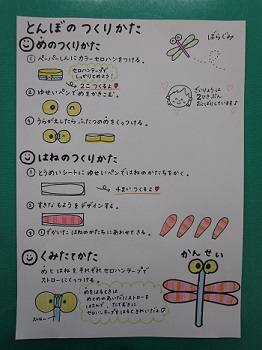 とんぼの つくりかた
ばらぐみ
めのつくりかた
① ペーパーしんにカラーセロハンをつける。
セロハンテープで
しっかりとめよう!
2こつくるよ
② ゆせいペンで めをかきこむ。
③ うらがえしたら ふたつのめをくっつける。
ざいりょうは
2ひきぶん
はねのつくりかた
① とうめいシートに ゆせいペンではねのかたちをかく。
4まいつくるよ
② すきな もようを デザインする。
③ ①でかいた はねのかたちにあわせてきる。
くみたてかた
めとはねをそれぞれセロハンテープで
ストローにくっつける。
めをはるときは
ストロー
かんせい